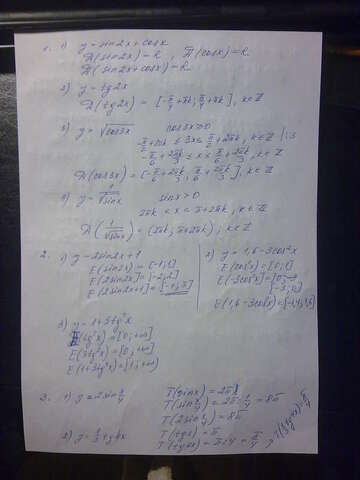 1. 1) y = sin2x + cosx
D(sin2x) = R, D(cosx) = R
D(sin2x + cosx) = R
2) y = tg2x
D(tg2x) = [-π/4 + πk; π/4 + πk], k∈Z
3) y = √cos3x cos3x ≥ 0
-π/2 + 2πk ≤ 3x ≤ π/2 + 2πk, k∈Z | :3
-π/6 + 2πk/3 ≤ x ≤ π/6 + 2πk/3, k∈Z
D(cos3x) = [-π/6 + 2πk/3; π/6 + 2πk/3], k∈Z
4) y = 1/√sinx sinx > 0
2πk < x < π + 2πk, k∈Z
D(1/√sinx) = (2πk; π + 2πk), k∈Z
2. 1) y = 2sin2x + 1
E(sin2x) = [-1; 1]
E(2sin2x) = [-2; 2]
E(2sin2x + 1) = [-1; 3]
2) y = 1,6 - 3cos²x
E(cos²x) = [0; 1]
E(-3cos²x) =
[-3; 0]
E(1,6 - 3cos²x) = [-1,4; 1,6]
3) y = 1 + 3tg²x
E(tg²x) = [0; +∞)
E(3tg²x) = [0; +∞)
E(1 + 3tg²x) = [1; +∞)
3. 1) y = 2sin x/4 T(sinx) = 2π
T(sin x/4) = 2π : 1/4 = 8π
T(2sin x/4) = 8π
2) y = 1/3 tg4x T(tgx) = π
T(tg4x) = π : 4 = π/4